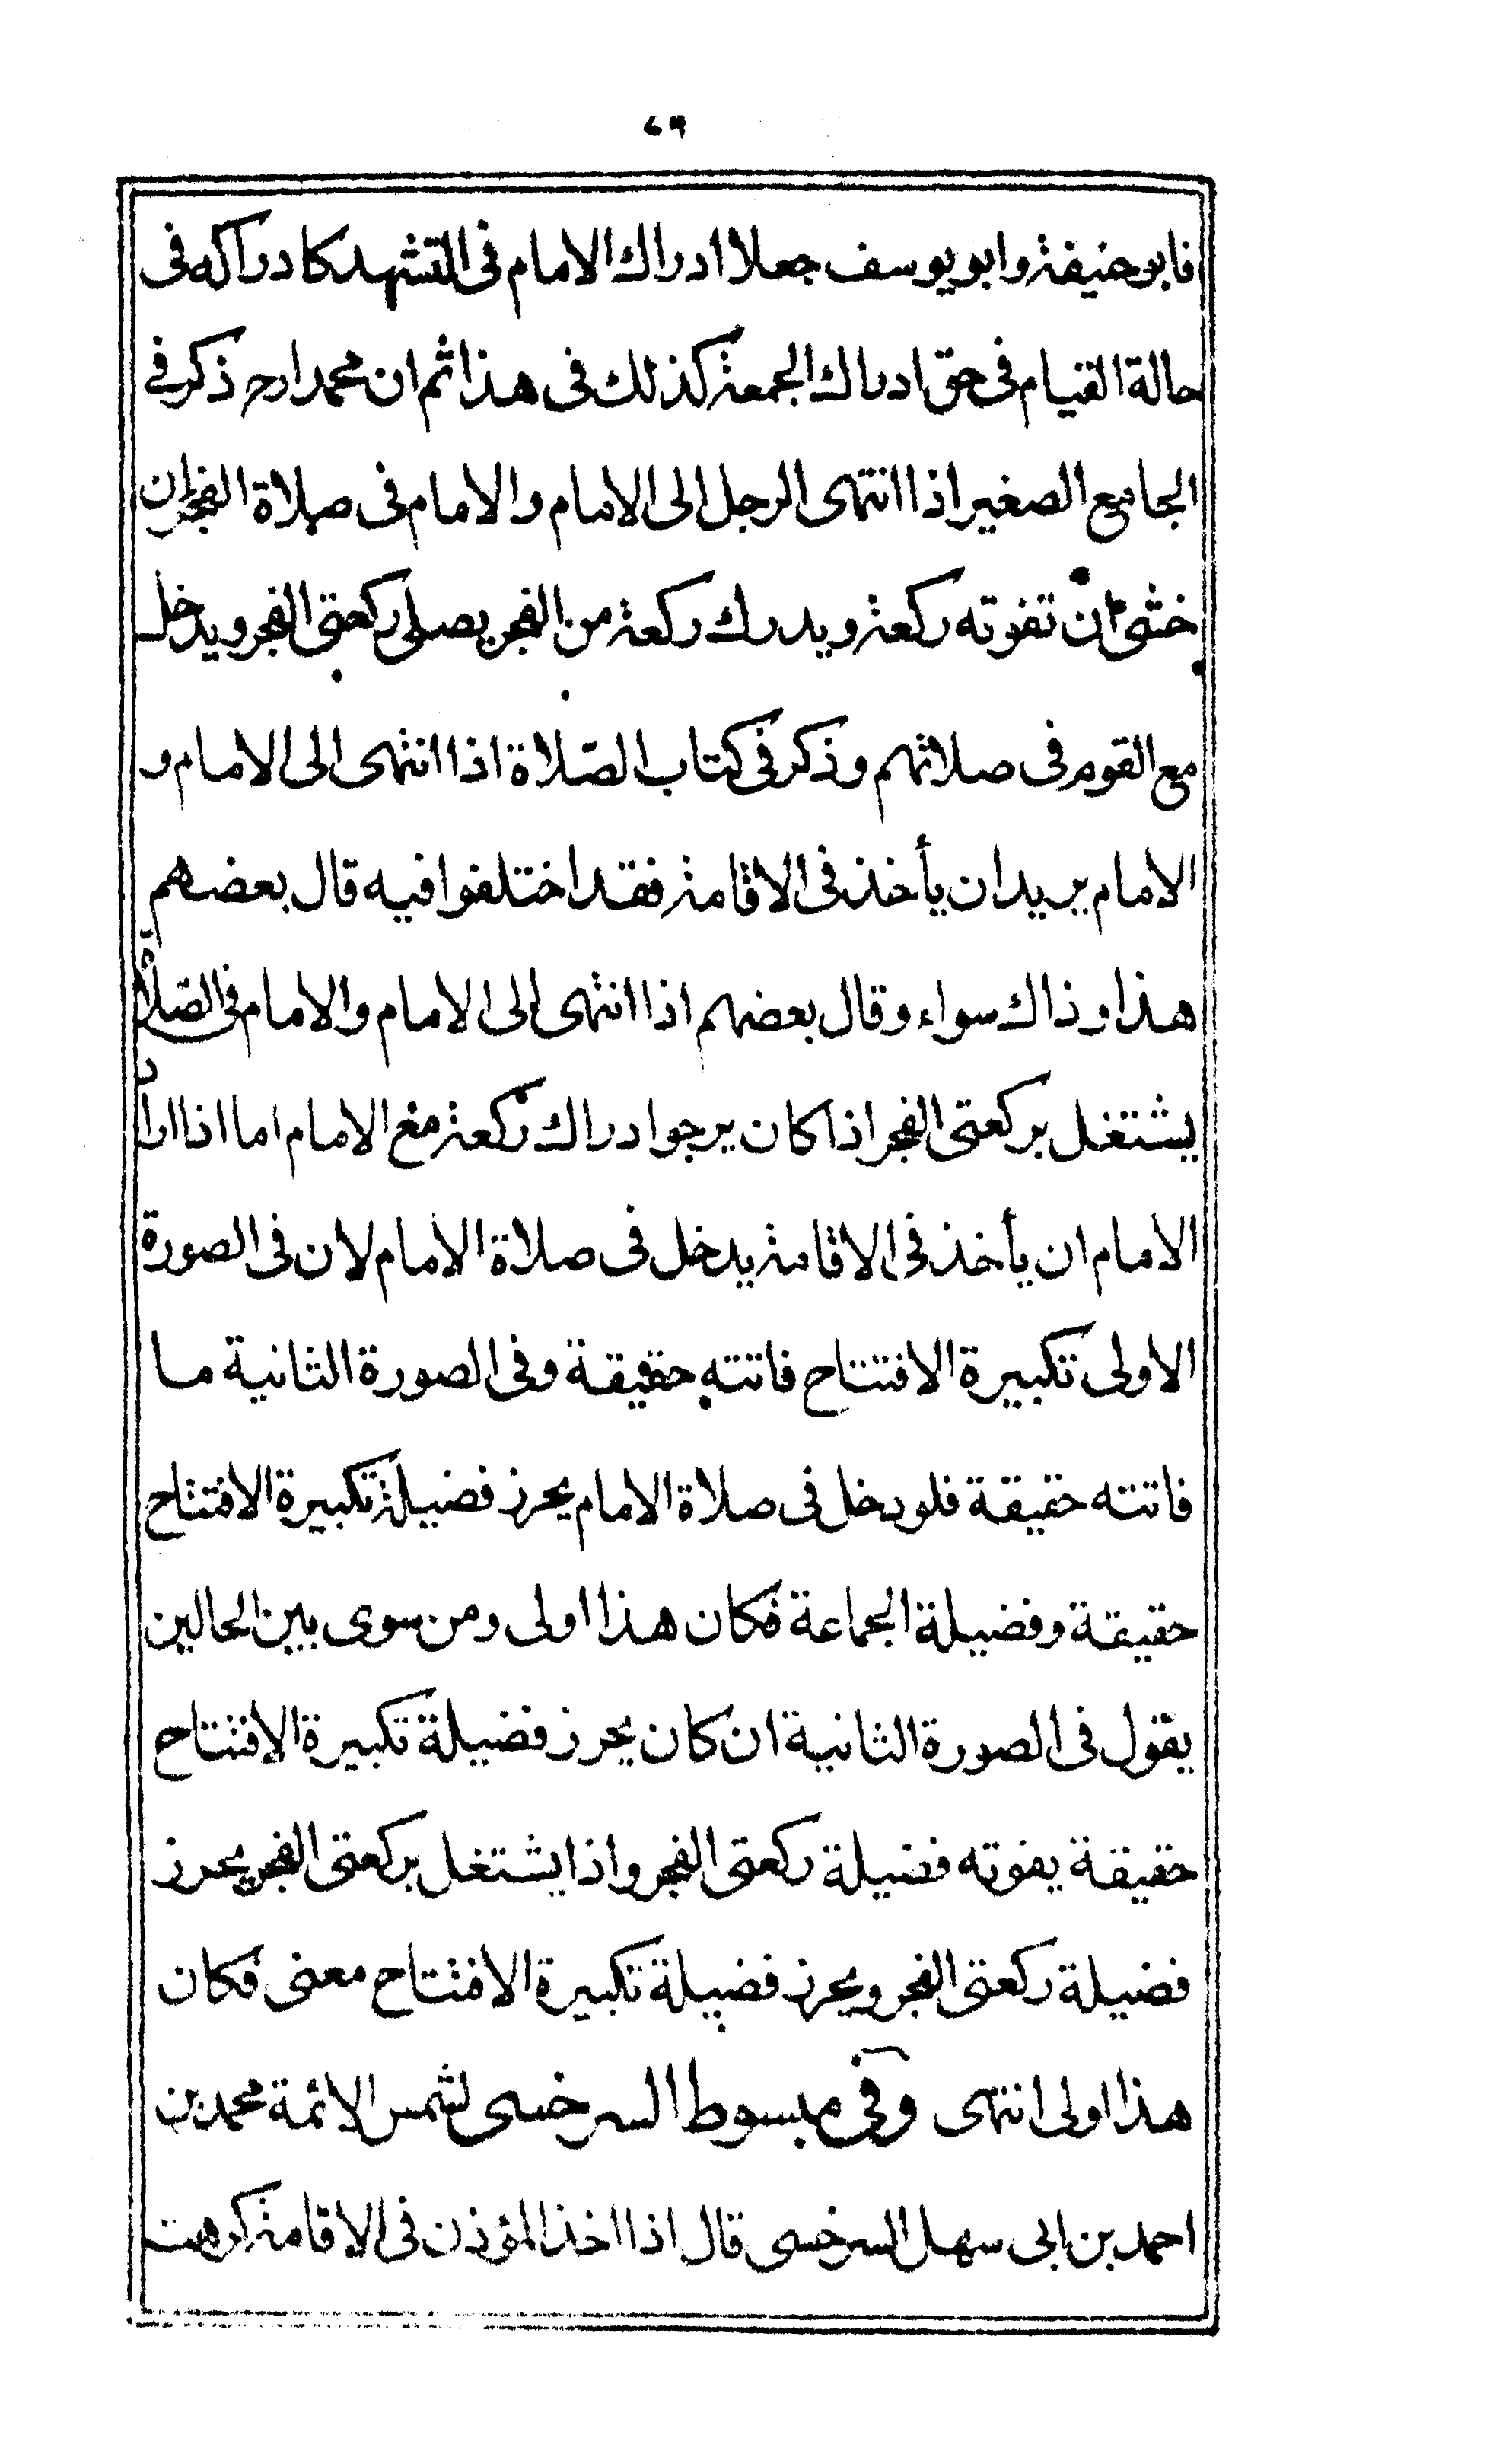 ٤٩
فابو حنيفة وابو يوسف جعلا ادراك الامام فى التشهد كادراكه فى
حالة القيام فى حق ادراك الجمعة كذلك فى هذا ثم ان محمدا رح ذكر في
الجامع الصغير اذا انتهى الرجل الى الامام والامام فى صلاة الفجر ان
خشى ان تفوته ركعة ويدرك ركعة من الفجر يصلى ركعتى الفجر ويدخل
مع القوم فى صلاتهم وذكر فى كتاب الصّلاة اذا انتهى الى الامام و
الامام يريد ان يأخذ فى الاقامة فقد اختلفوا فيه قال بعضهم
هذا وذاك سواء وقال بعضهم اذا انتهى الى الامام والامام فى الصّلاة
يشتغل بركعتى الفجر اذا كان يرجو ادراك ركعة مع الامام اما اذا اراد
الامام ان يأخذ فى الاقامة يدخل فى صلاة الامام لان فى الصورة
الاولى تكبيرة الافتتاح فاتته حقيقة وفى الصورة الثانية ما
فاتته حقيقة فلو دخل فى صلاة الامام يحرز فضيلة تكبيرة الافتتاح
حقيقة وفضيلة الجماعة فكان هذا اولى ومن سوى بين الحالين
يقول فى الصورة الثانية ان كان يحرز فضيلة تكبيرة الافتتاح
حقيقة يفوته فضيلة ركعتى الفجر واذا يشتغل بركعتى الفجر يحرز
فضيلة ركعتى الفجر ويحرز فضيلة تكبيرة الافتتاح معنى فكان
هذا اولى انتهى وفى مبسوط السرخسى لشمس الائمة محمد بن
احمد بن ابى سهل السرخسى قال اذا اخذ المؤذن فى الاقامة كرهت